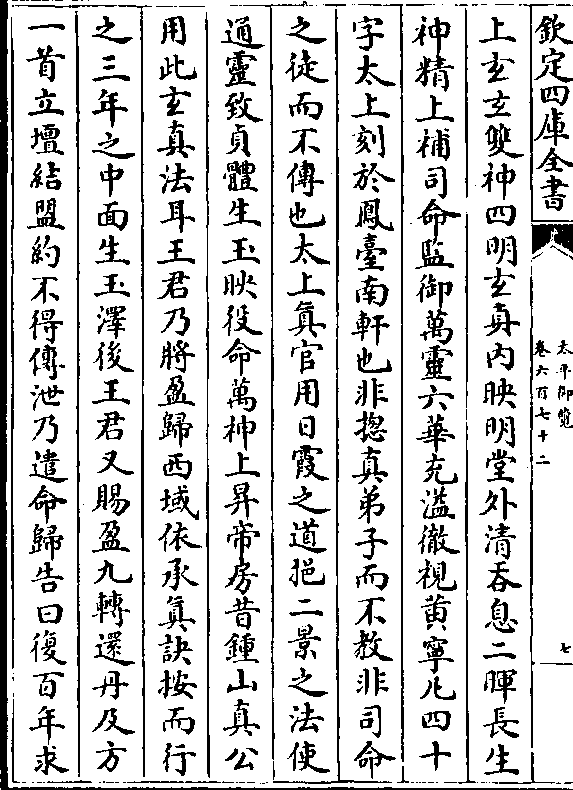 欽定四庫全書
太平御覽
卷六百七十二
七
上玄玄雙神四明玄真内映明堂外清吞息二暉長生
神精上補司命監御萬靈六華充溢徹視黄寧凡四十
字太上刻於鳳臺南軒也非揔真弟子而不教非司命
之徒而不傳也太上真官用日霞之道挹二景之法使
通靈致貞體生玉映役命萬神上昇帝房昔鍾山真公
用此玄真法耳王君乃將盈歸西域依承真訣按而行
之三年之中面生玉澤後王君又賜盈九轉還丹及方
一首立壇結盟約不得傳泄乃遣命歸告曰復百年求